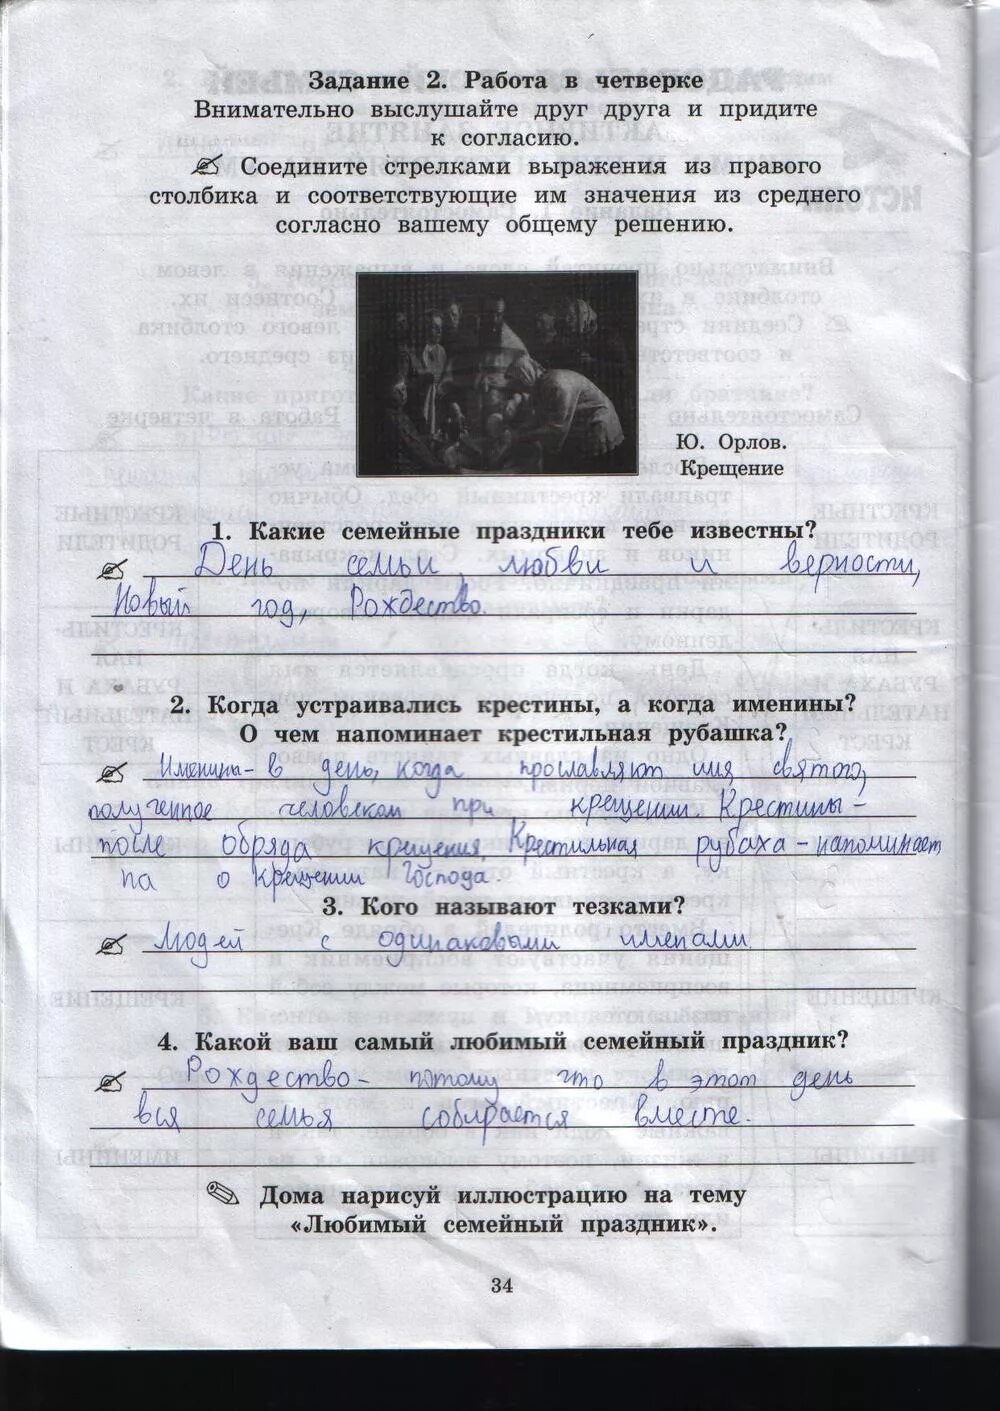 Задание 2. Работа в четверке
Внимательно выслушайте друг друга и придите
к согласию.
Соедините стрелками выражения из правого
столбика и соответствующие им значения из среднего
согласно вашему общему решению.
Ю. Орлов.
Крещение
1. Какие семейные праздники тебе известны?
День семьи, любви и верности,
Новый год, Рождество.
2. Когда устраивались крестины, а когда именины?
О чем напоминает крестильная рубашка?
Именины - в день, когда прославляют имя святого,
полученное человеком при крещении. Крестины -
после обряда крещения. Крестильная рубаха - напоминает
на о крещении Господа.
3. Кого называют тезками?
Людей с одинаковыми именами.
4. Какой ваш самый любимый семейный праздник?
Рождество - потому что в этот день
вся семья собирается вместе.
Дома нарисуй иллюстрацию на тему
«Любимый семейный праздник».
34